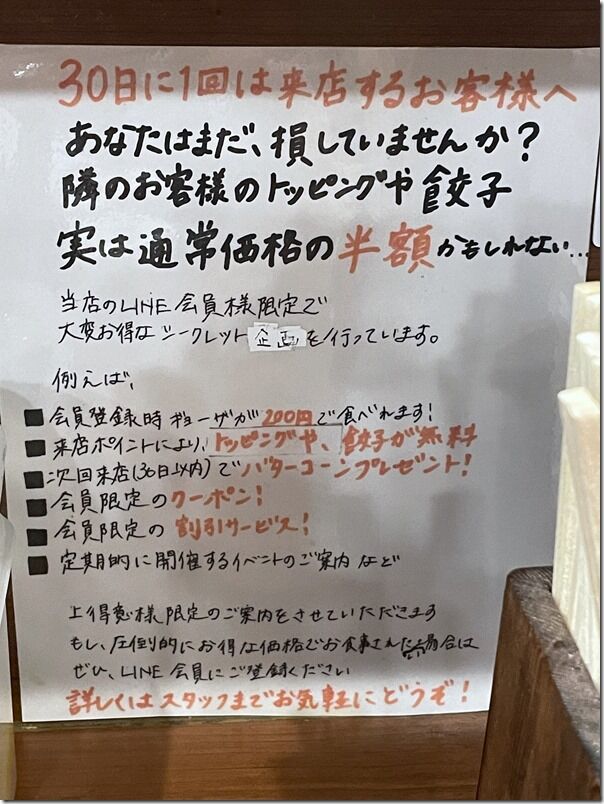 30日に1回は来店するお客様へ
あなたはまだ、損していませんか?
隣のお客様のトッピングや餃子
実は通常価格の半額かもしれない...
当店のLINE会員様限定で
大変お得なシークレット企画を行っています。
例えば、
■会員登録時ギョーザが200円で食べれます!
■来店ポイントにより、トッピングや、餃子が無料
■次回来店(30日以内)でバターコーンプレゼント!
■会員限定のクーポン!
■会員限定の割引サービス!
■定期的に開催するイベントのご案内など
上得意様限定のご案内をさせていただきます
もし、圧倒的にお得な価格でお食事されたい場合は
ぜひ、LINE会員にご登録ください
詳しくはスタッフまでお気軽にどうぞ!